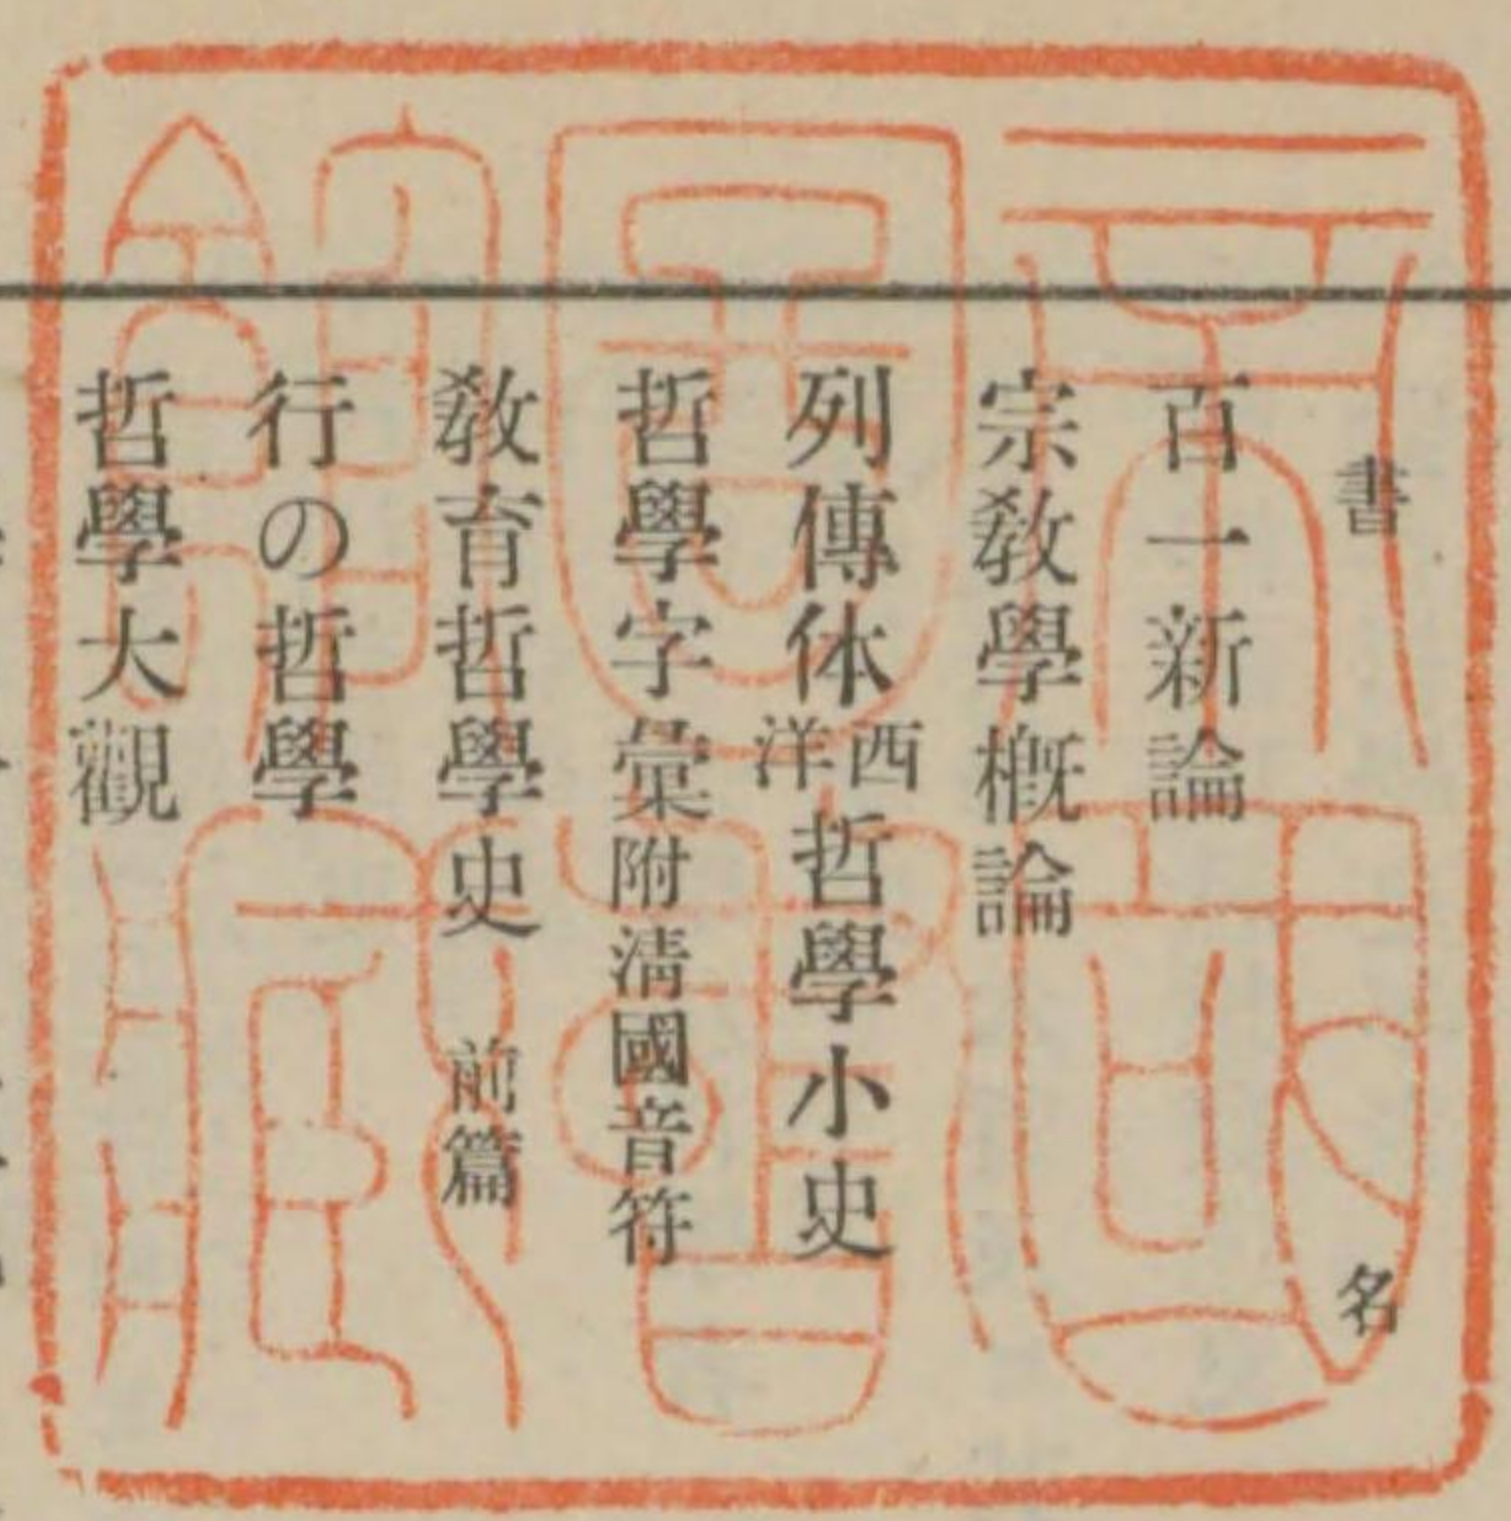 書名
百一新論
宗教學槪論
列傳体西洋哲學小史
哲學字彙附淸國音符
教育哲學史 前篇
行の哲學
哲學大觀